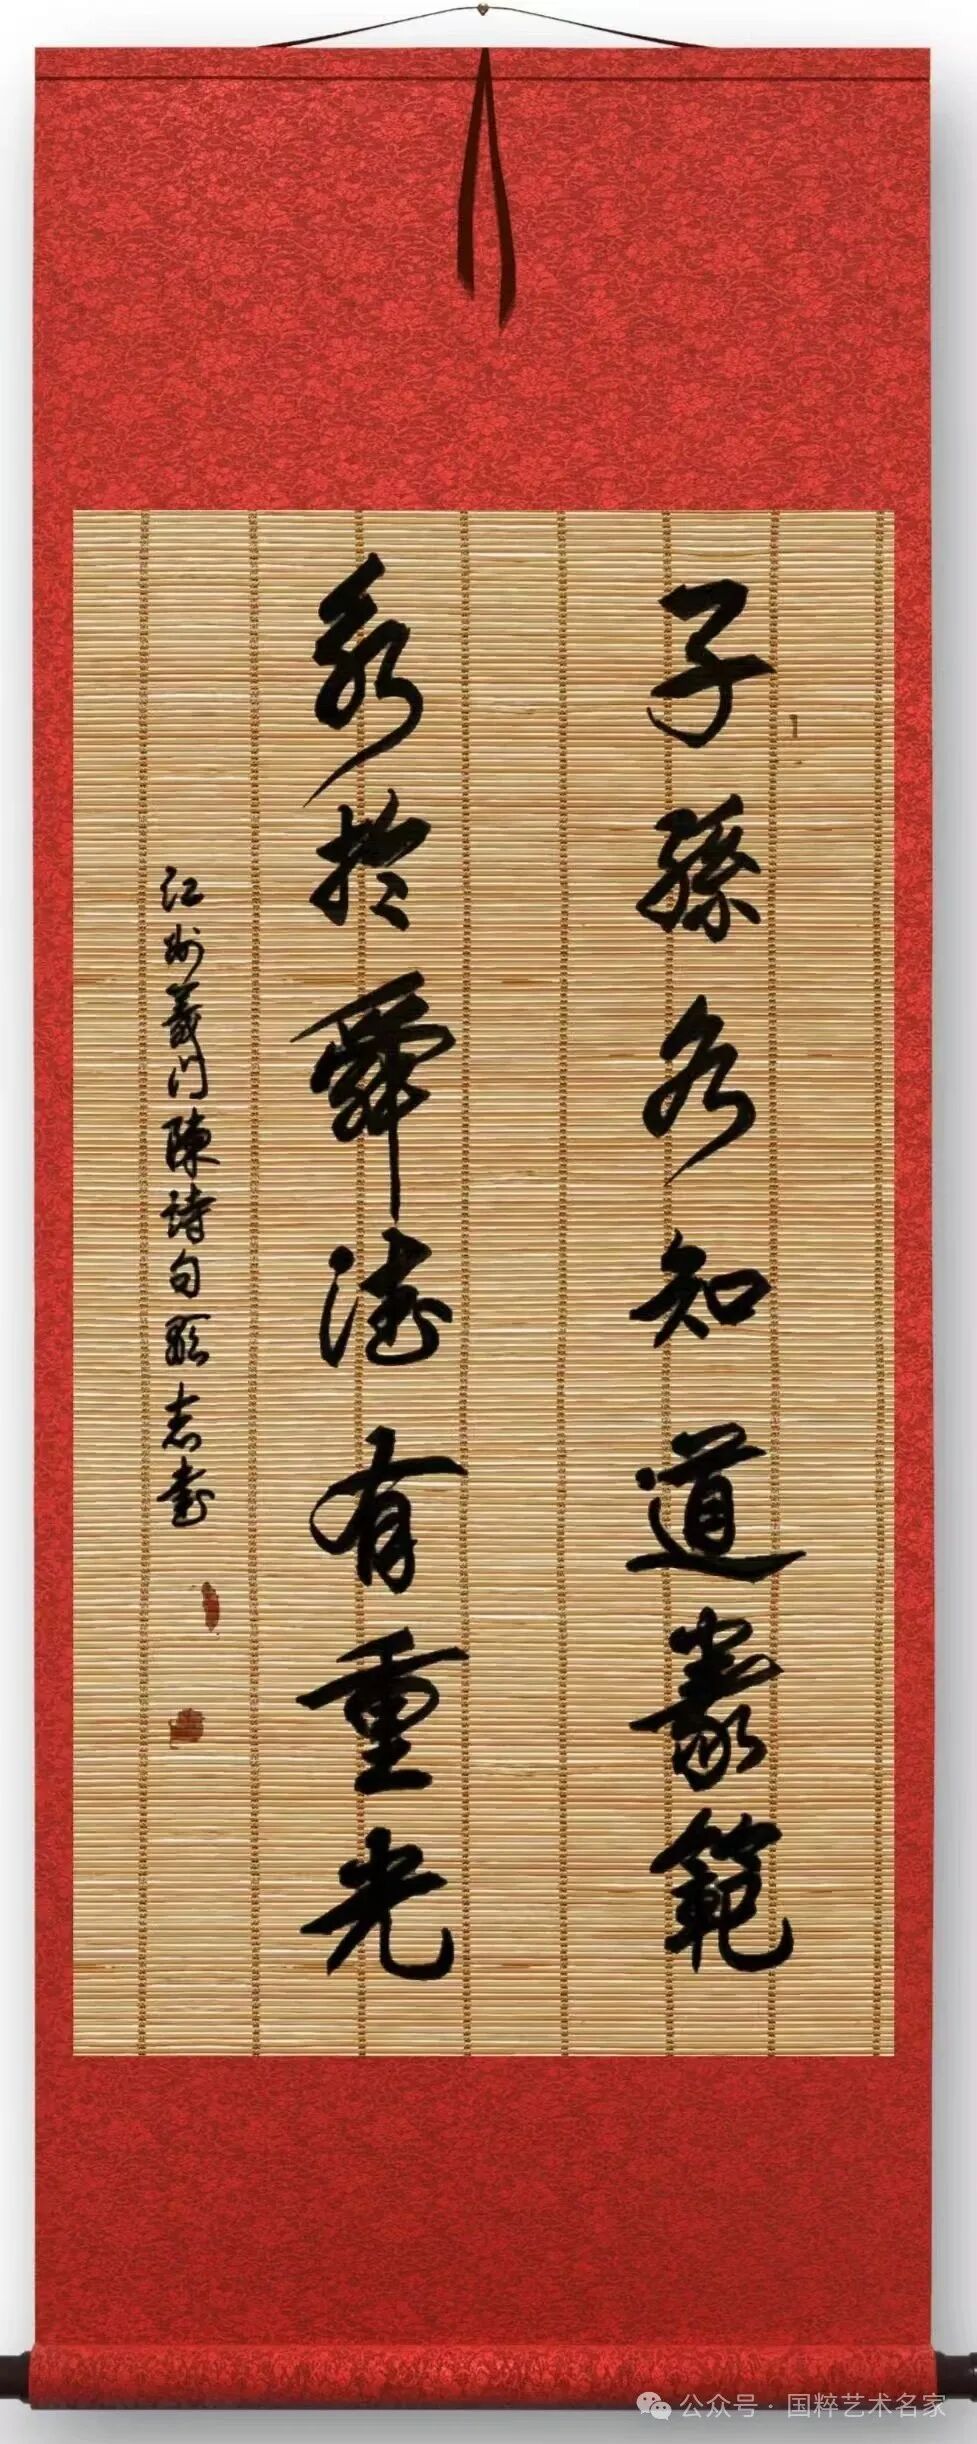 子孫知道範
於舜德有重光
江州義門陳詩句志書
公众号·国粹艺术名家